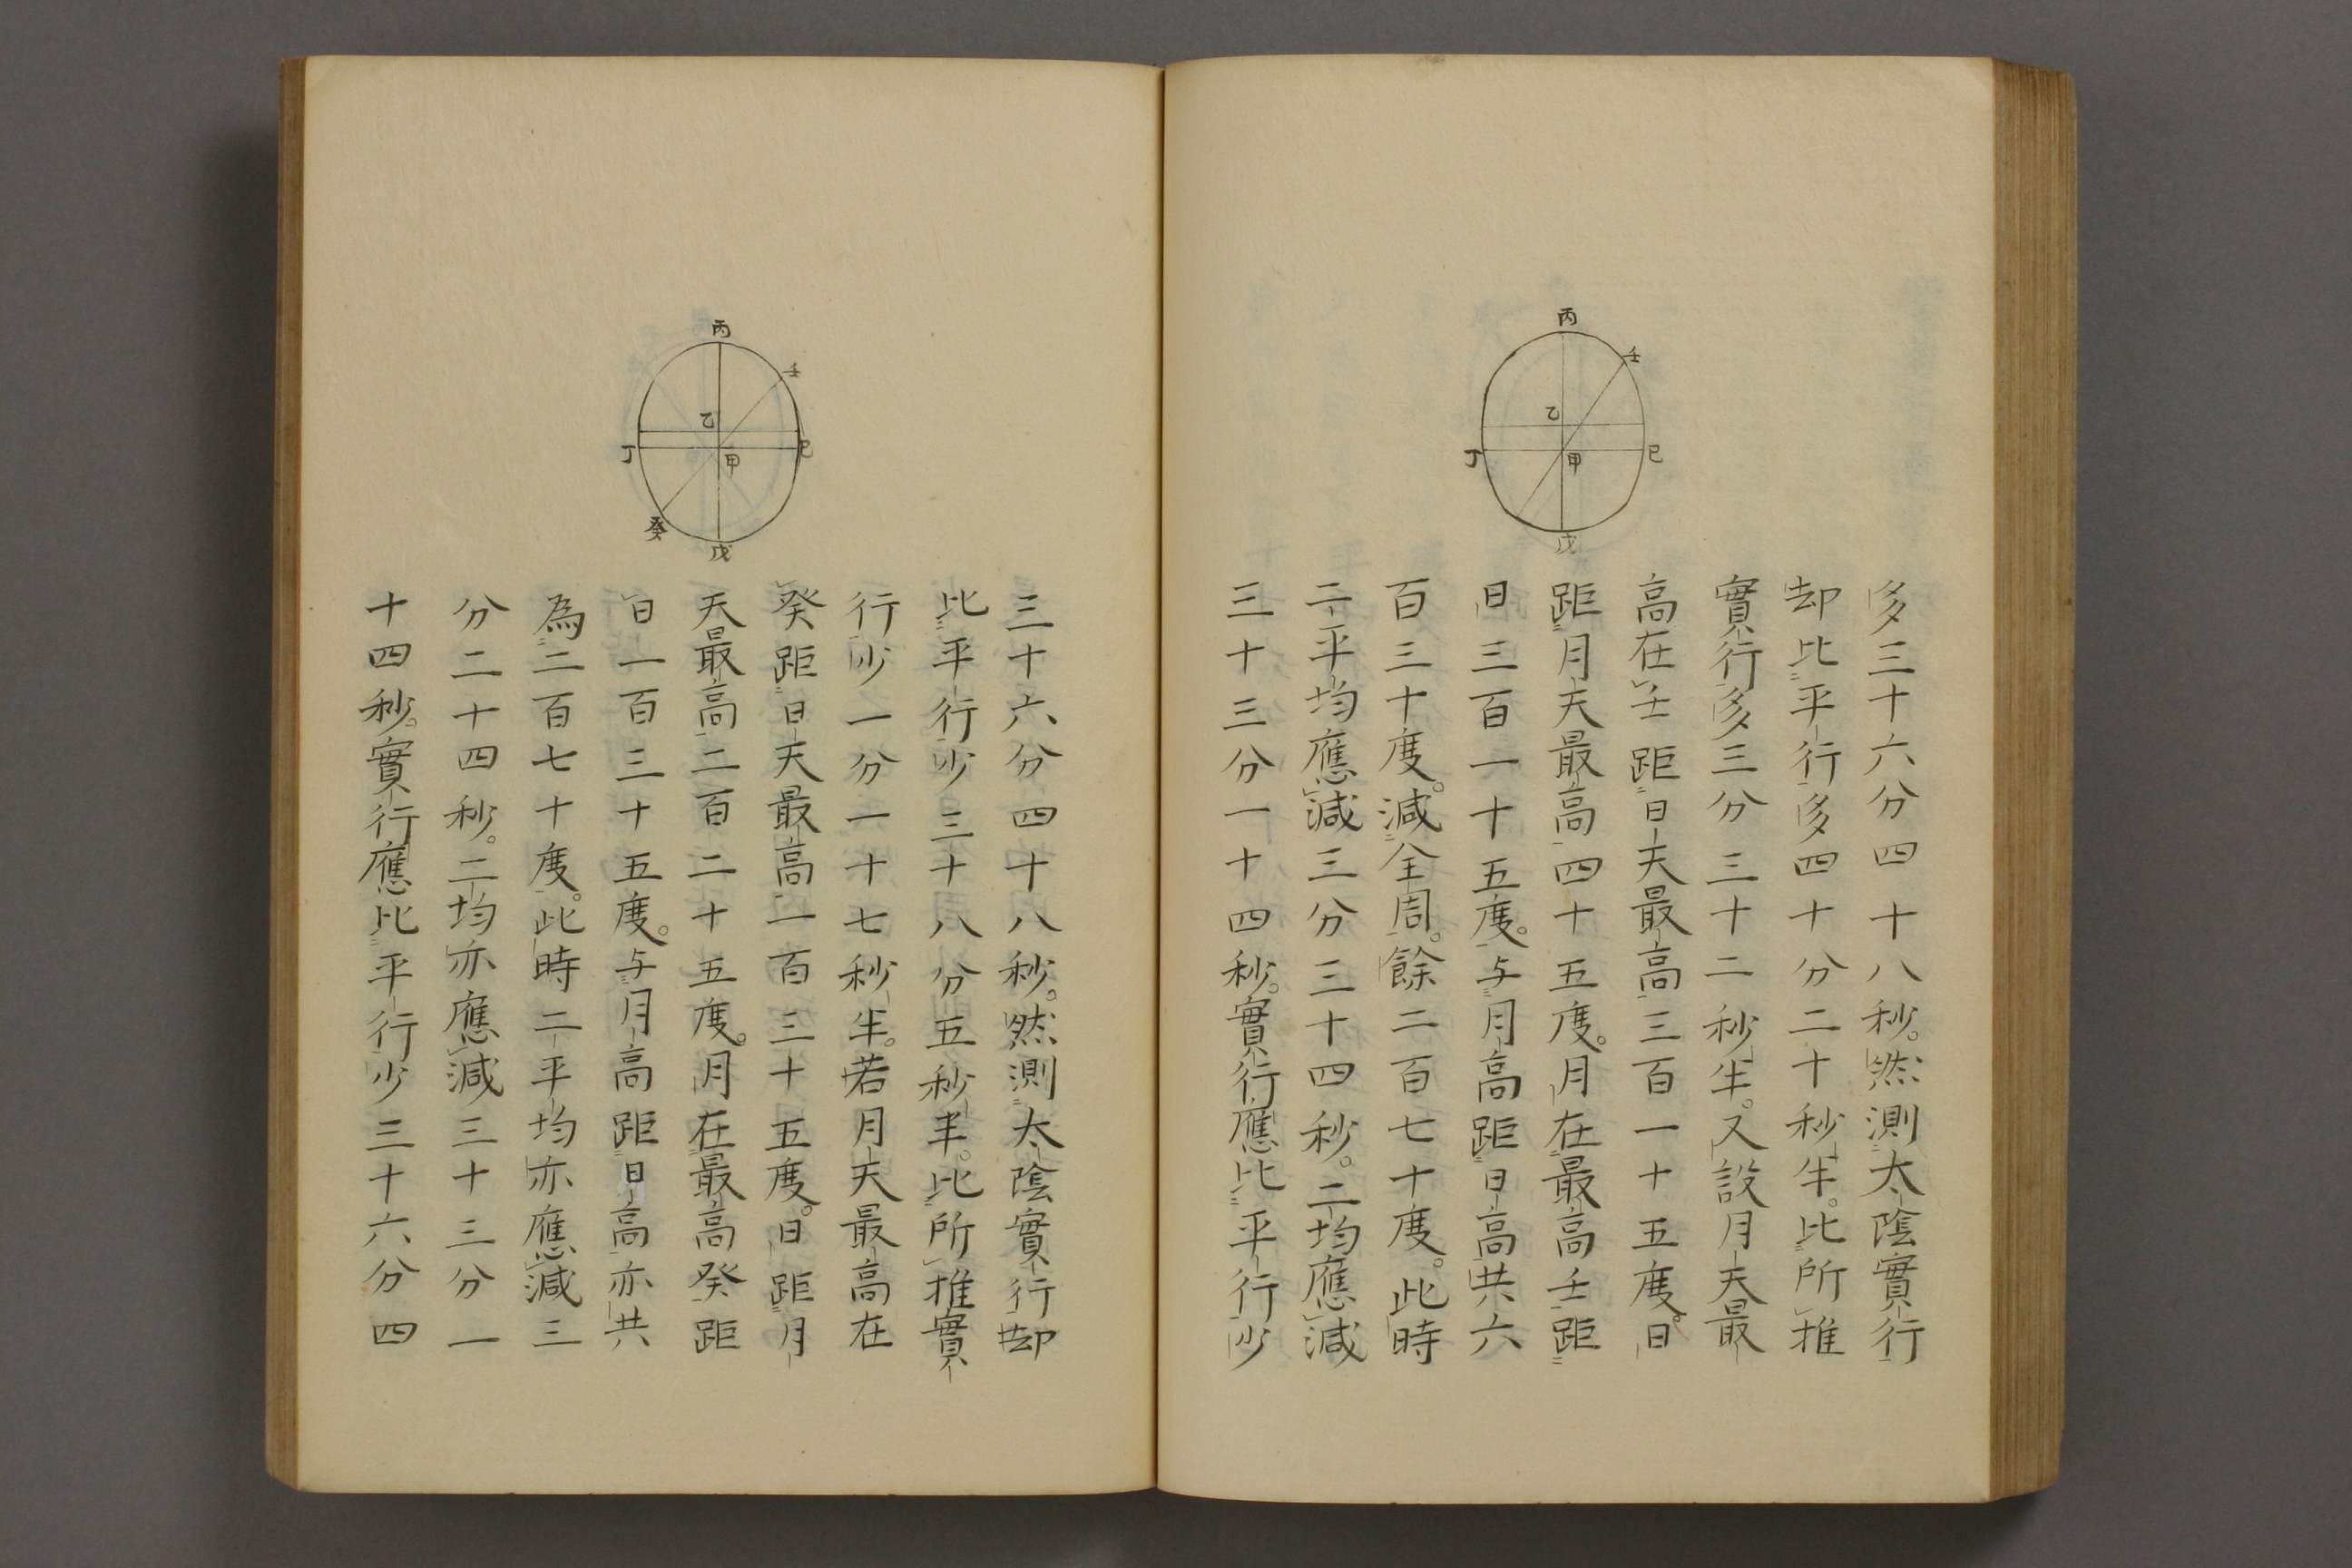 丙
壬
乙
丁
甲
巳
戊
多三十六分四十八秒。然測太陰實行
却比平行多四十分二十秒半。比所推
實行多三分三十二秒半。又設月天最
高在壬距日天最高三百一十五度。日
距月天最高四十五度。月在最高壬距
日三百一十五度。与月高距日高共六
百三十度。減全周。餘二百七十度。此時
二平均應減三分三十四秒。二均應減
三十三分一十四秒。實行應比平行少
丙
壬
乙
丁
甲
巳
癸
戊
三十六分四十八秒。然測太陰實行却
比平行少三十八分五秒半。比所推實
行少一分一十七秒半。若月天最高在
癸距日天最高一百三十五度。日距月
天最高二百二十五度。月在最高癸距
日一百三十五度。与月高距日高亦共
為二百七十度。此時二平均亦應減三
分二十四秒。二均亦應減三十三分一
十四秒。實行應比平行少三十六分四